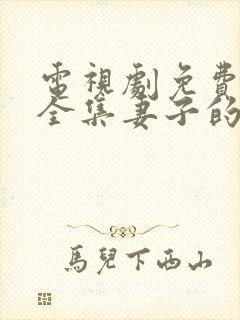 電視劇免費
全集妻子的
馬兒下西山